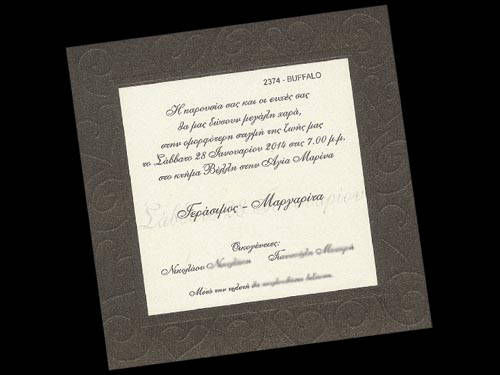 2374 - BUFFALO
Η παρουσία σας και οι ευχές σας
θα μας δώσουν μεγάλη χαρά,
στην ομορφότερη στιγμή της ζωής μας
το Σάββατο 28 Ιανουαρίου 2014 στις 7.00 μ.μ.
στο κτήμα Βέλλη στην Αγία Μαρίνα
Γεράσιμος - Μαργαρίτα
Οικογένειες:
Νικολάου
Μετά την τελετή θα